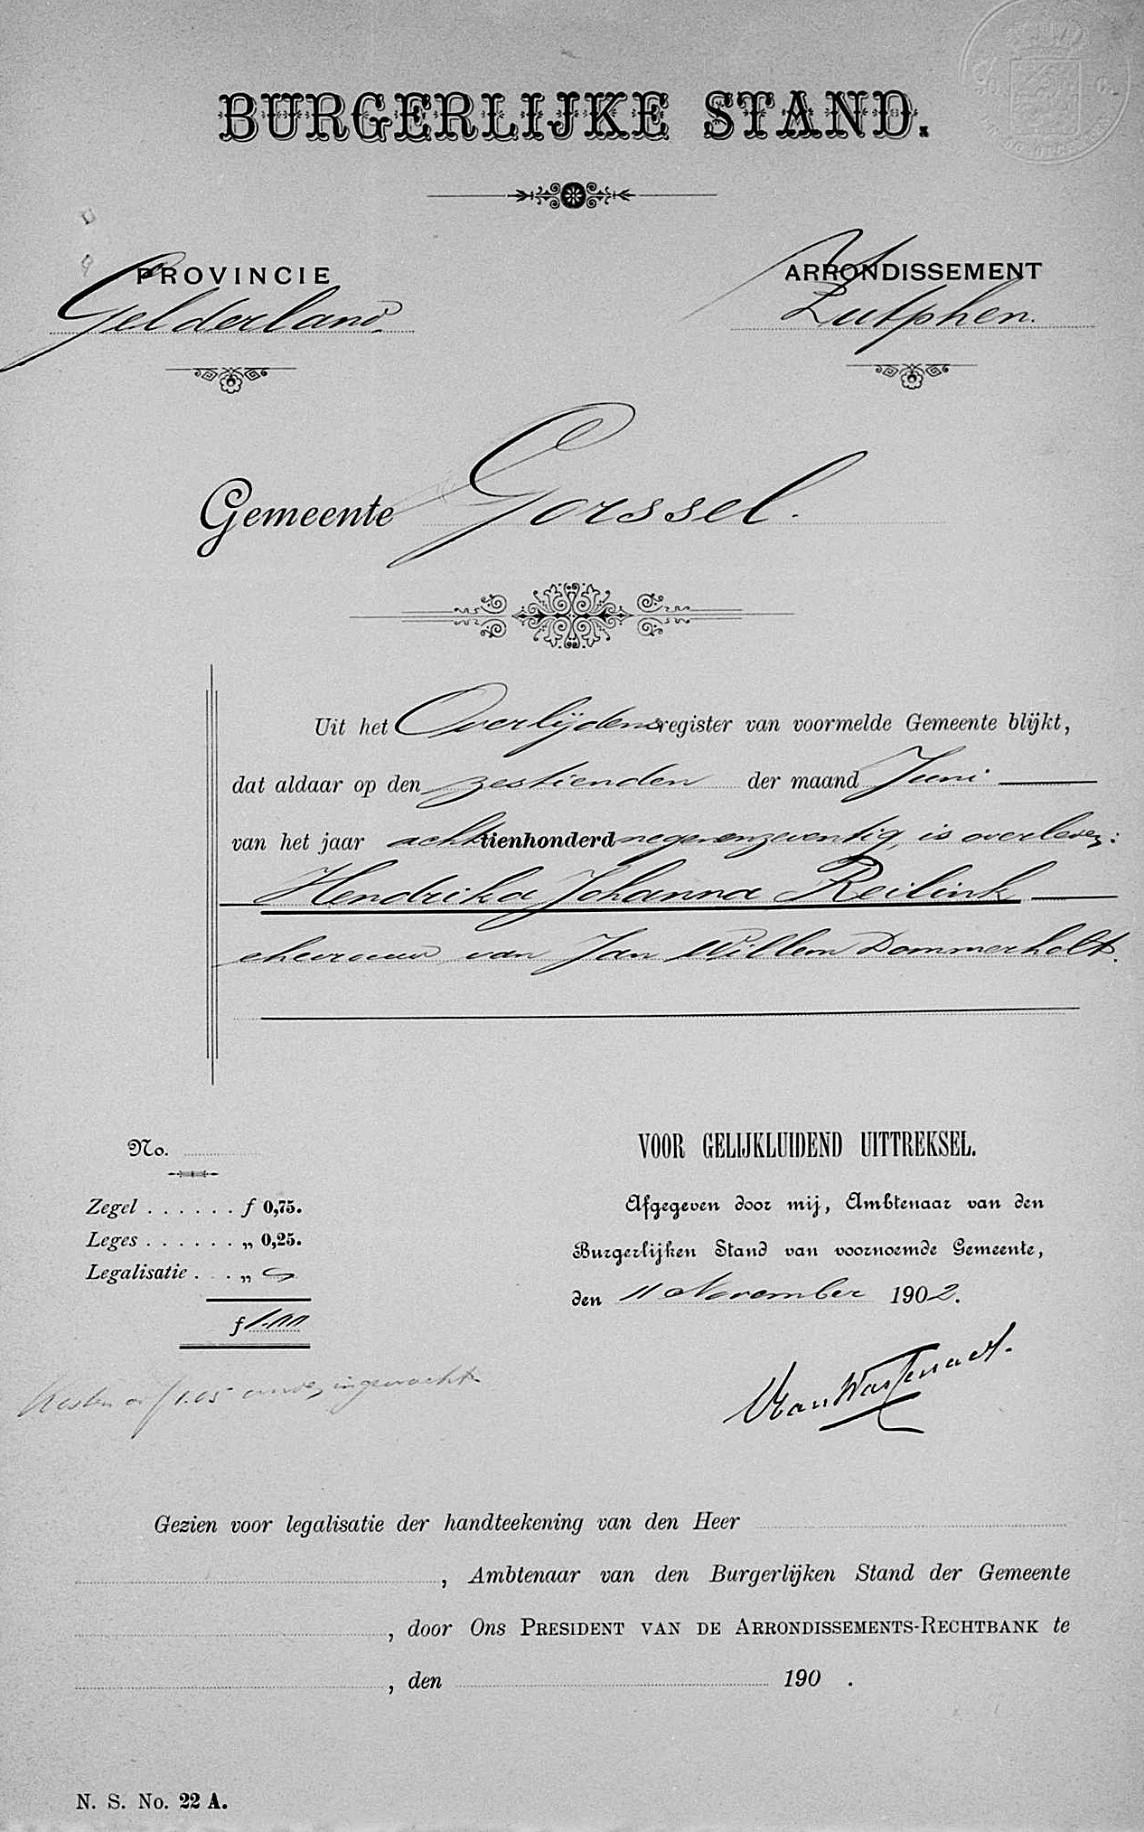 BURGERLIJKE STAND.
PROVINCIE
Gelderland.
ARRONDISSEMENT
Zutphen.
Gemeente Gorssel.
Uit het Overlijdensregister van voormelde Gemeente blijkt,
dat aldaar op den zestienden der maand Juni
van het jaar achttienhonderd negenenzeventig, is overleden:
Hendrika Johanna Reilink
ehevrouw van Jan Willem Dommerholt.
No.
Zegel . . . . . . f 0,75.
Leges . . . . . . „ 0,25.
Legalisatie . . . „
f 1.00
Kosten af f 1.05
VOOR GELIJKLUIDEND UITTREKSEL.
Afgegeven door mij, Ambtenaar van den
Burgerlijken Stand van voornoemde Gemeente,
den 11 November 1902.
Gezien voor legalisatie der handteekening van den Heer
, Ambtenaar van den Burgerlijken Stand der Gemeente
, door Ons PRESIDENT VAN DE ARRONDISSEMENTS-RECHTBANK te
, den 190 .
N. S. No. 22 A.